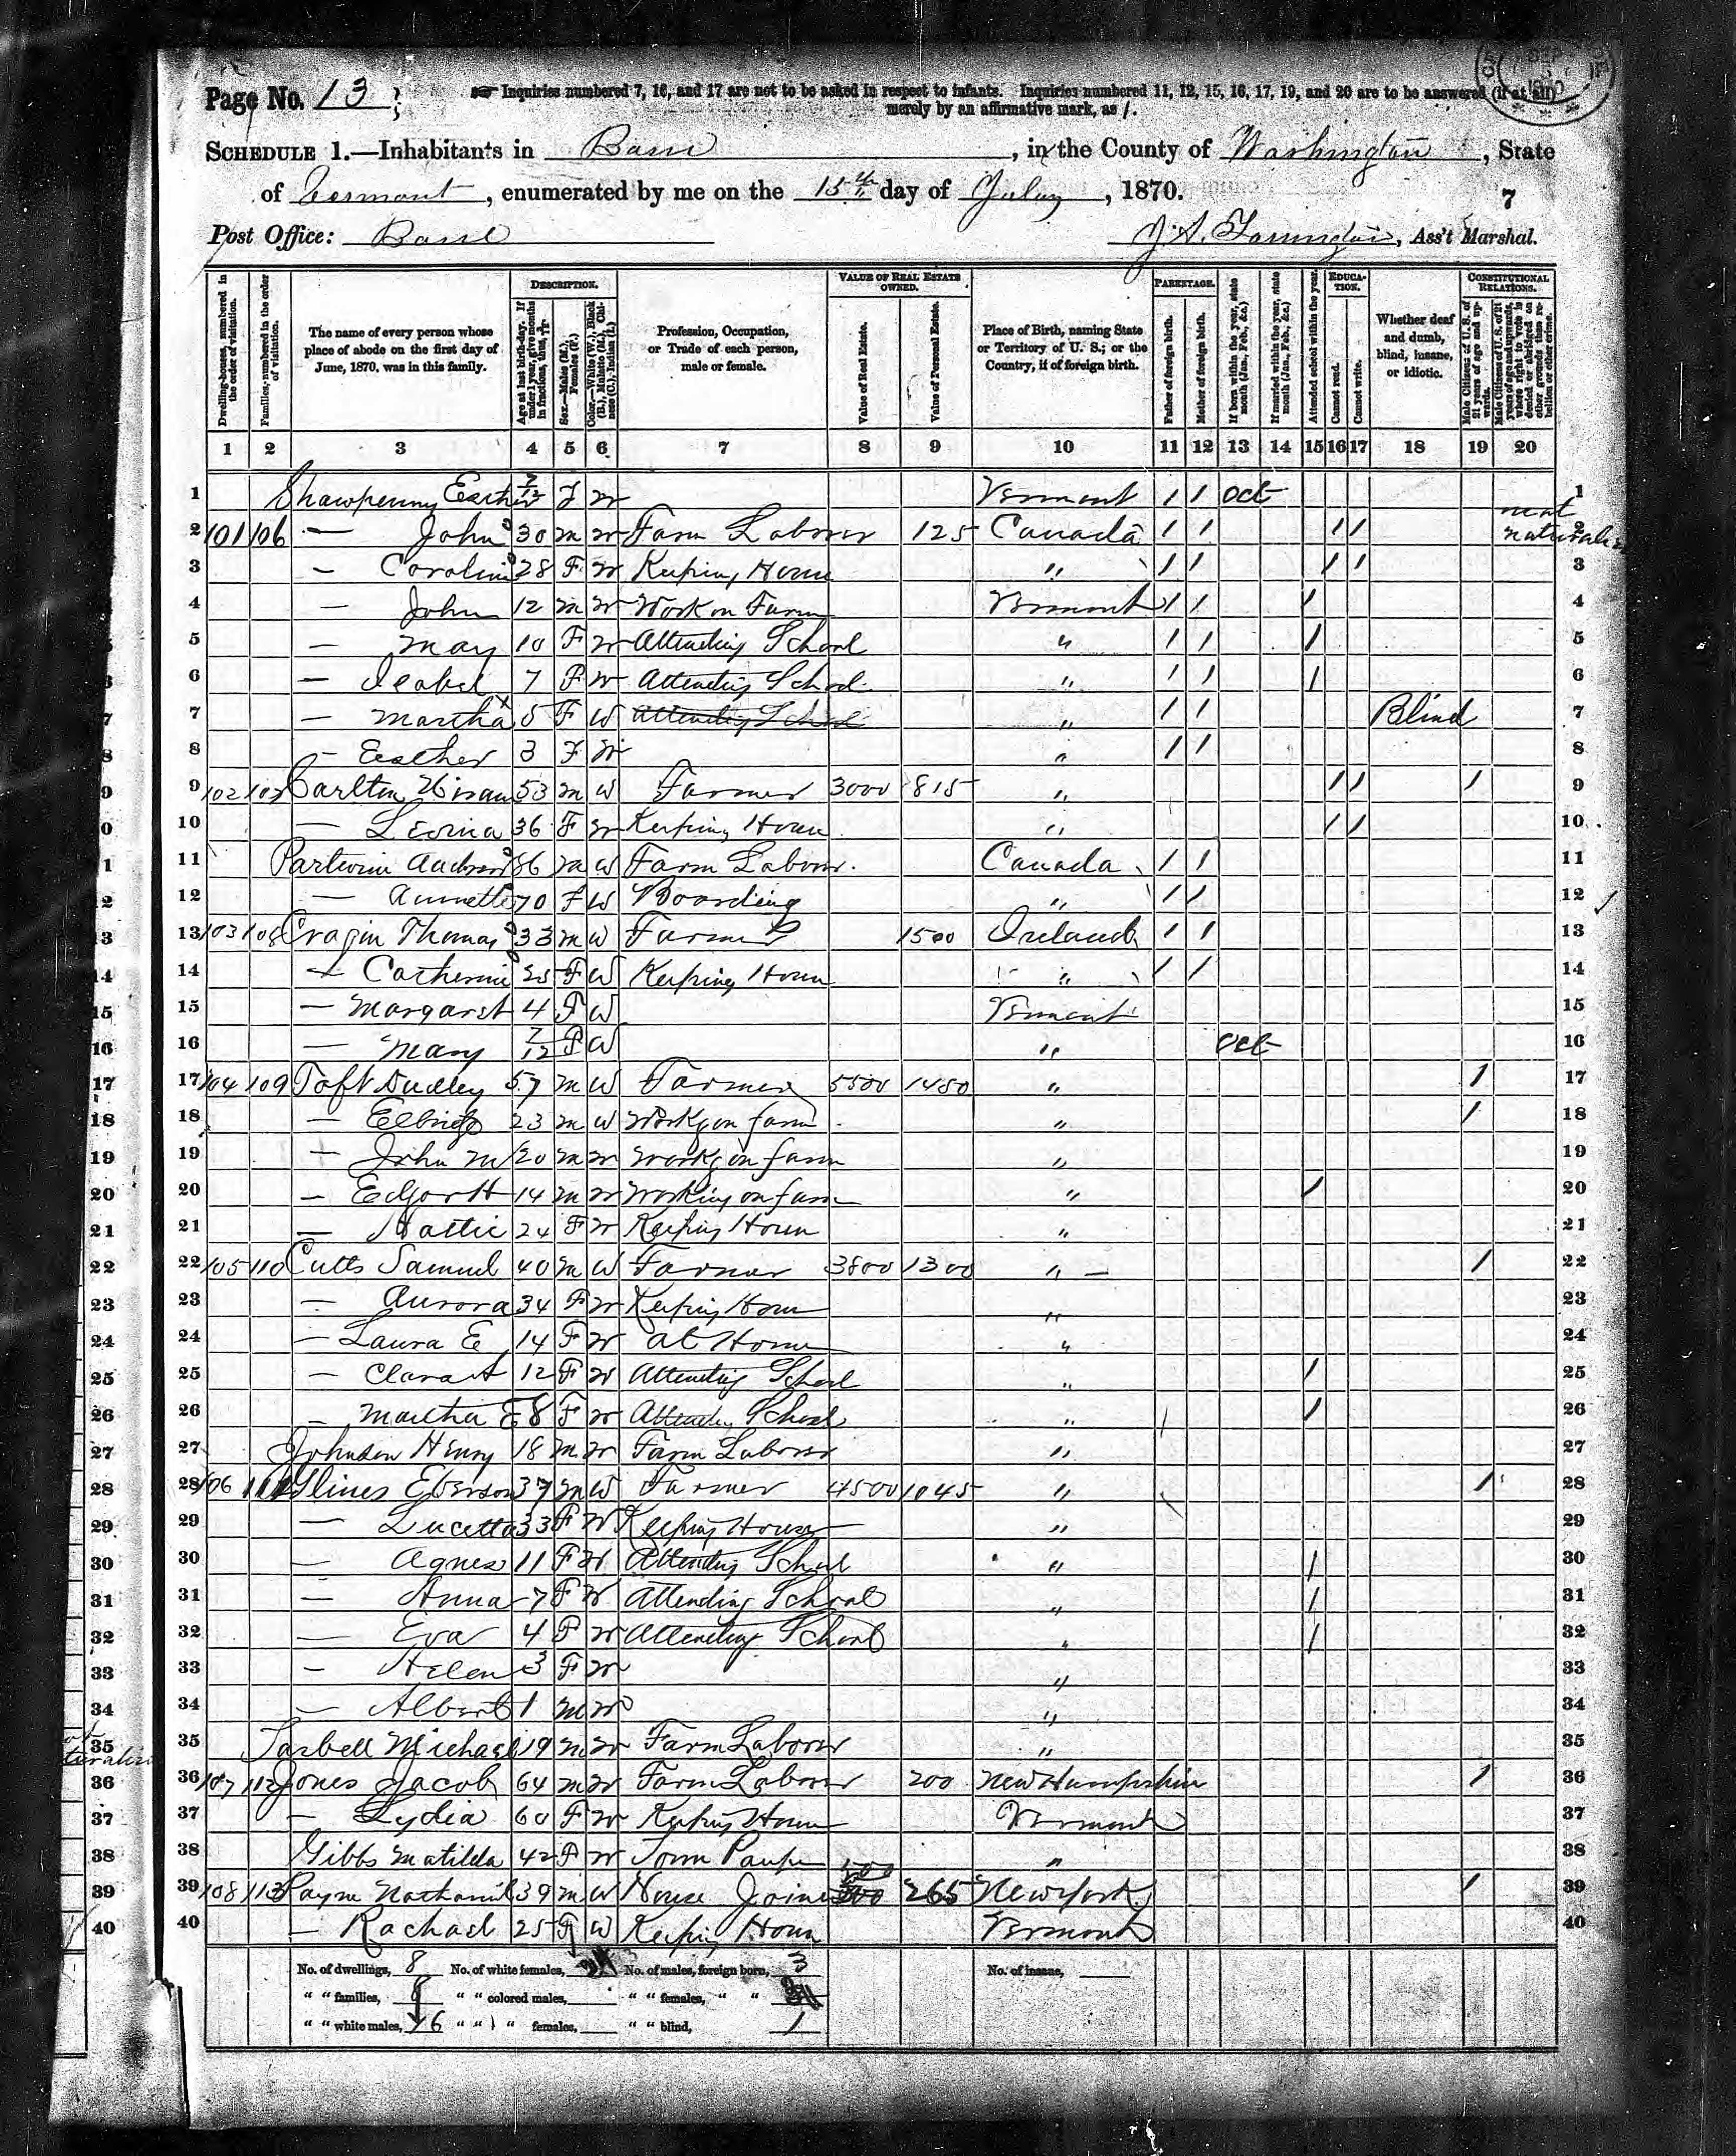 Page No. 13
Inquiries numbered 7, 16, and 17 are not to be asked in respect to infants. Inquiries numbered 11, 12, 15, 16, 17, 19, and 20 are to be answered (if at all)
merely by an affirmative mark, as /.
SCHEDULE 1.—Inhabitants in Barre, in the County of Washington, State
of Vermont, enumerated by me on the 15th day of July, 1870.
7
Post Office: Barre
J. A. , Ass't Marshal.
Dwelling-houses, numbered in the order of visitation.
Families, numbered in the order of visitation.
The name of every person whose place of abode on the first day of June, 1870, was in this family.
DESCRIPTION.
Age at last birth-day. If under 1 year, give months in fractions, thus, 
Sex.—Males (M.), Females (F.)
Color.—White (W.), Black (B.), Mulatto (M.), Chinese (C.), Indian (I.)
Profession, Occupation, or Trade of each person, male or female.
VALUE OF REAL ESTATE OWNED.
Value of Real Estate.
Value of Personal Estate.
Place of Birth, naming State or Territory of U. S.; or the Country, if of foreign birth.
PARENTAGE.
Father of foreign birth.
Mother of foreign birth.
If born within the year, state month (Jan., Feb., &c.)
If married within the year, state month (Jan., Feb., &c.)
Attended school within the year.
EDUCATION.
Cannot read.
Cannot write.
Whether deaf and dumb, blind, insane, or idiotic.
CONSTITUTIONAL RELATIONS.
Male Citizens of U. S. of 21 years of age and upwards.
Male Citizens of U. S. of 21 years of age and upwards, where right to vote is denied or abridged on other grounds than rebellion or other crime.
1 2 3 4 5 6 7 8 9 10 11 12 13 14 15 16 17 18 19 20
1 Esther 7/12 F W Vermont / / Oct 1
2 101 106 — John 30 M W Farm Laborer 125 Canada / / / / not 2
3 — Caroline 28 F W Keeping House " / / / / 3
4 — John 12 M W Work on Farm Vermont / / / 4
5 — Mary 10 F W Attending School " / / / 5
6 — Isabel 7 F W Attending School " / / / 6
7 — Martha 5 F W Attending School " / / Blind 7
8 — Esther 3 F W " / / 8
9 102 107 Carlton Hiram 53 M W Farmer 3000 815 " / / / 9
10 — Levina 36 F W Keeping House " / / 10
11 86 M W Farm Laborer Canada / / 11
12 — Annette 70 F W Boarding " / / 12
13 103 108 Cragin Thomas 33 M W Farmer 1500 Ireland / / 13
14 — Catherine 25 F W Keeping House " / / 14
15 — Margaret 4 F W Vermont 15
16 — Mary 7/12 F W " Oct 16
17 104 109 Taft Dudley 57 M W Farmer 5500 1450 " / 17
18 — 23 M W Workg on farm " / 18
19 — John M 20 M W Workg on farm " 19
20 — Edgar H 14 M W Working on farm " / 20
21 — Hattie 24 F W Keeping House " 21
22 105 110 Cutts Samuel 40 M W Farmer 3800 1300 " / 22
23 — Aurora 34 F W Keeping House " 23
24 — Laura E 14 F W at Home " 24
25 — Clara A 12 F W Attending School " / 25
26 — Martha E 8 F W Attending School " / 26
27 Johnson Henry 18 M W Farm Laborer " 27
28 106 111 Glines Eberson 37 M W Farmer 4500 1045 " / 28
29 — Lucetta 33 F W Keeping House " 29
30 — Agnes 11 F W Attending School " / 30
31 — Anna 7 F W Attending School " / 31
32 — Eva 4 F W Attending School " / 32
33 — Helen 3 F W " 33
34 — Albert 1 M W " 34
35 Tarbell Michael 19 M W Farm Laborer " 35
36 107 112 Jones Jacob 64 M W Farm Laborer 200 New Hampshire / 36
37 — Lydia 60 F W Keeping House Vermont 37
38 Gibbs Matilda 42 F W Town Pauper " 38
39 108 113 Payne Nathaniel 39 M W House Joiner 500 265 New York / 39
40 — Rachael 25 F W Keeping House Vermont 40
No. of dwellings, 8 No. of white females, No. of males, foreign born, 3 No. of insane,
" " families, 8 " " colored males, " " females, " "
" " white males, 16 " " " females, " " blind, 1